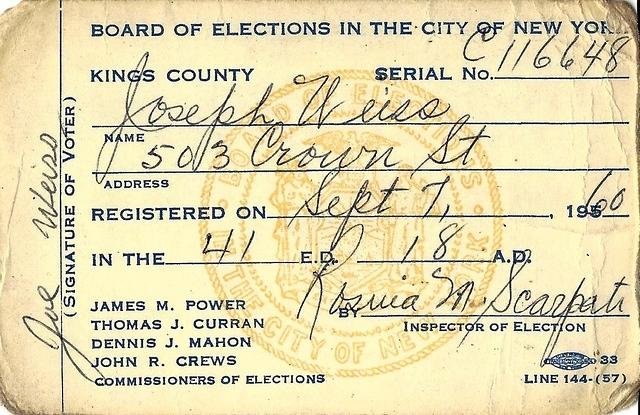 BOARD OF ELECTIONS IN THE CITY OF NEW YOR
KINGS COUNTY SERIAL No. C 116648
Joseph Weiss
NAME
503 Crown St
ADDRESS
REGISTERED ON Sept 7, , 1960
IN THE 41 E.D. 18 A.D.
JAMES M. POWER
THOMAS J. CURRAN
DENNIS J. MAHON
JOHN R. CREWS
COMMISSIONERS OF ELECTIONS
BY M. Scarpati
INSPECTOR OF ELECTION
33
LINE 144-(57)
Joe Weiss
(SIGNATURE OF VOTER)
BOARD OF ELECTIONS
THE CITY OF NEW YORK